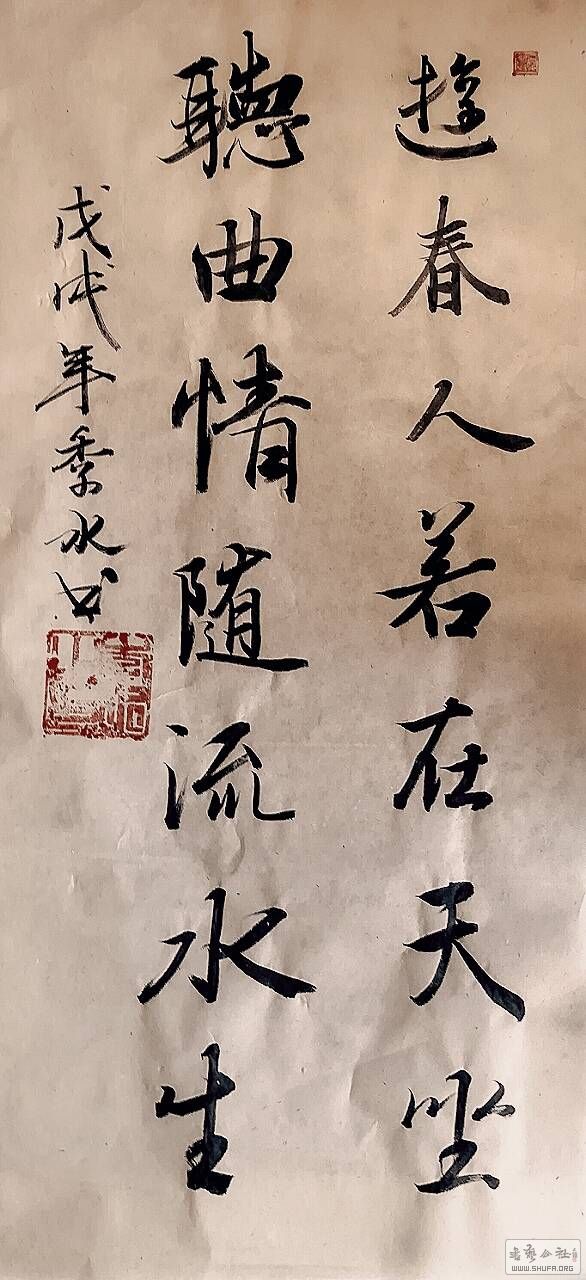 遊春人若在天坐
聽曲情随流水生
戊戌年季水书
书艺公社
WWW.SHUFA.ORG